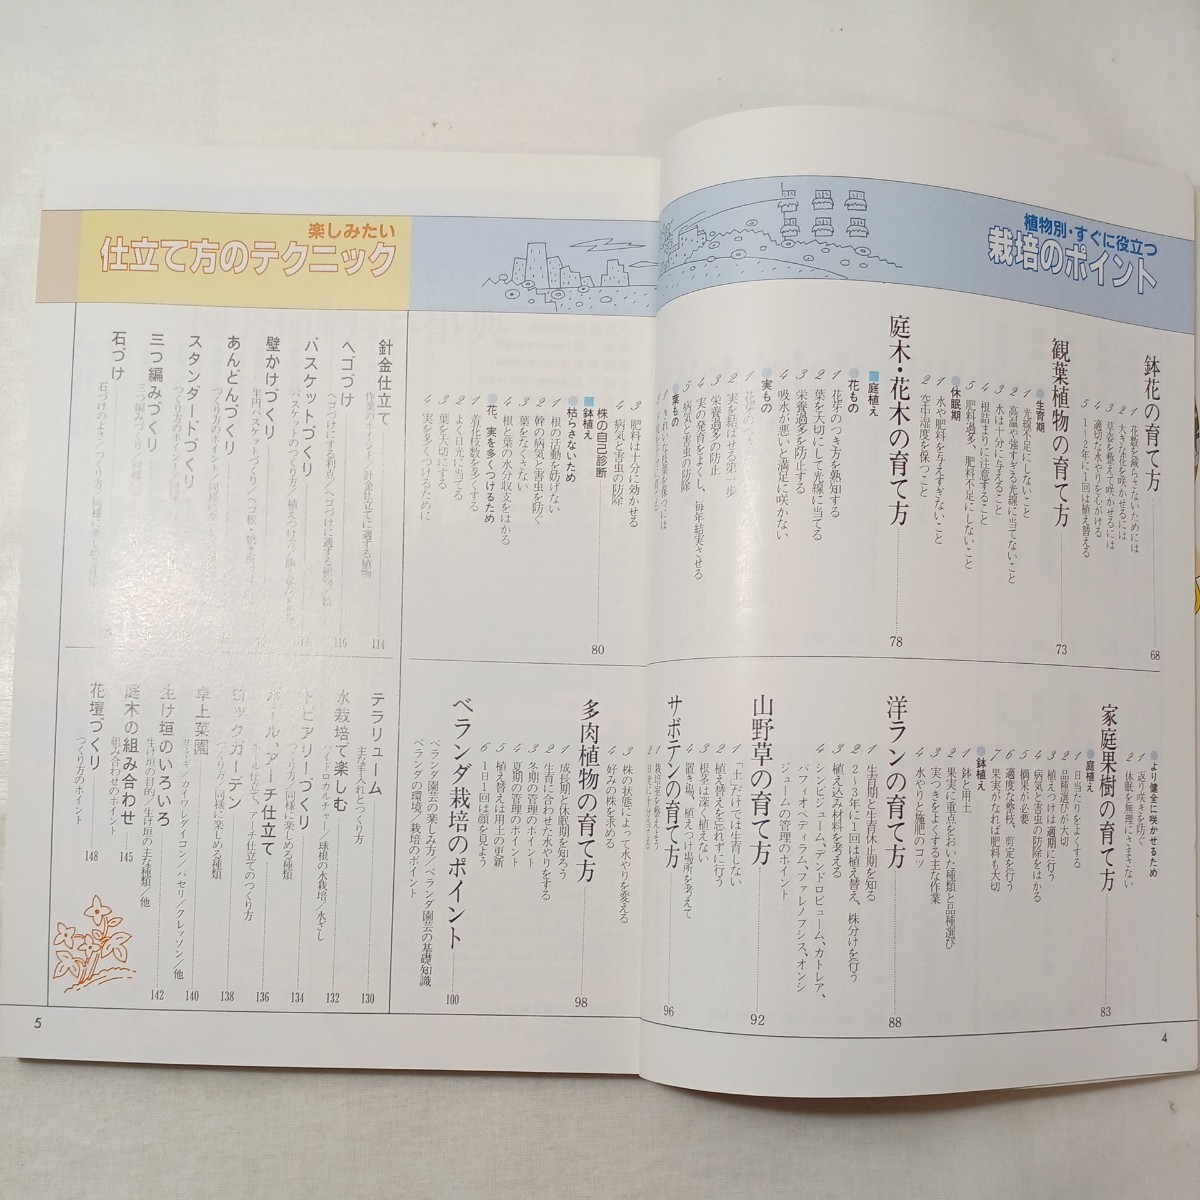 植物別・すぐに役立つ
栽培のポイント
鉢花の育て方 68
1 花数を減らさないためには
2 大きな花を咲かせるには
3 草姿を整えて咲かせるには
4 適切な水やりを心がける
5 1〜2年に1回は植え替える
観葉植物の育て方 73
●生育期
1 光線不足にしないこと
2 高温や強すぎる光線に当てないこと
3 水は十分に与えること
4 根詰まりに注意すること
5 肥料過多、肥料不足にしないこと
●休眠期
1 水や肥料を与えすぎないこと
2 空中湿度を保つこと
庭木・花木の育て方 78
■庭植え
●花もの
1 花芽のつき方を熟知する
2 葉を大切にして光線に当てる
3 栄養過多を防止する
4 吸水が悪いと満足に咲かない
●実もの
2 実を結ばせる第一歩
3 栄養過多の防止
4 実の発育をよくし、毎年結実させる
5 病気と害虫の防除
●葉もの
1 きれいな花葉を保つには
3 肥料は十分に効かせる
4 病気と害虫の防除
株の自己診断 80
■鉢植え
●枯らさないため
1 根の活動を妨げない
2 幹の病気と害虫を防ぐ
3 葉をなくさない
4 根と葉の水分収支をはかる
●花、実を多くつけるため
1 着花枝数を多くする
2 よく日光に当てる
3 葉を大切にする
4 実を多くつけるために
家庭果樹の育て方 83
●より健全に咲かせるため
1 返り咲きを防ぐ
2 休眠を無理にさまさない
■庭植え
1 日当たりをよくする
2 品種選びが大切
3 植えつけは適期に行う
4 病気と害虫の防除をはかる
5 摘果が必要
6 適度な整枝、剪定を行う
7 果実がなれば肥料も大切
■鉢植え
1 鉢と用土
2 果実に重点をおいた種類と品種選び
3 実つきをよくする主な作業
4 水やりと施肥のコツ
洋ランの育て方 88
1 生育期と生育休止期を知る
2 2〜3年に1回は植え替え、株分けを行う
3 植え込み材料を考える
4 シンビジューム、デンドロビューム、カトレア、
パフィオペディラム、ファレノプシス、オンシ
ジュームの管理のポイント
山野草の育て方 92
1 「土」だけでは生育しない
2 植え替えを忘れずに行う
3 根茎は深く植えない
4 置き場、植えつけ場所を考えて
サボテンの育て方 96
3 株の状態によって水やりを変える
4 好みの株を求める
多肉植物の育て方 98
1 成長期と休眠期を知ろう
2 生育に合わせた水やりをする
3 冬期の管理のポイント
4 夏期の管理のポイント
5 植え替えは用土の更新
6 1日1回は顔を見よう
ベランダ栽培のポイント 100
ベランダ園芸の楽しみ方/ベランダ園芸の基礎知識
ベランダの環境/栽培のポイント
4
楽しみたい
仕立て方のテクニック
針金仕立て 114
作業のポイント/針金仕立てに適する植物
ヘゴづけ 116
ヘゴづけにする利点/ヘゴづけに適する植物/他
バスケットづくり
バスケットのつくり方/植えつけ方
壁かけづくり
あんどんづくり
スタンダードづくり
三つ編みづくり
石づけ
テラリューム 130
主な手入れとつくり方
水栽培で楽しむ 132
ハイドロカルチャー/球根の水栽培/水ざし
トピアリーづくり 134
つくり方/同様に楽しめる種類
ポール、アーチ仕立て 136
ポール仕立て、アーチ仕立てのつくり方
ロックガーデン 138
つくり方/同様に楽しめる種類
卓上菜園 140
芽ネギ/カイワレダイコン/パセリ/クレッソン/他
生け垣のいろいろ 142
生け垣の目的/生け垣の主な種類/他
庭木の組み合わせ 145
組み合わせのポイント
花壇づくり 148
つくり方のポイント
5